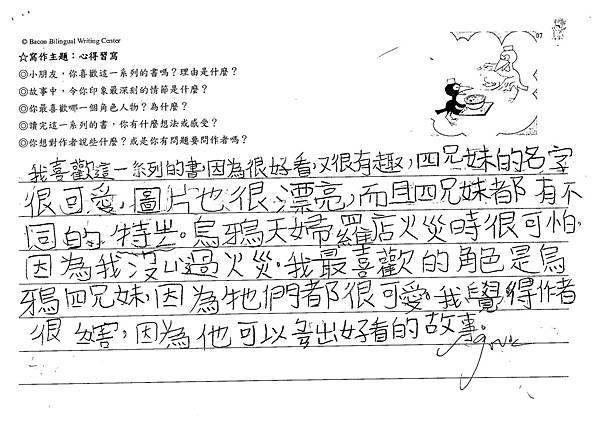 © Bacon Bilingual Writing Center
07
☆寫作主題：心得習寫
◎小朋友，你喜歡這一系列的書嗎？理由是什麼？
◎故事中，令你印象最深刻的情節是什麼？
◎你最喜歡哪一個角色人物？為什麼？
◎讀完這一系列的書，你有什麼想法或感受？
◎你想對作者說些什麼？或是你有問題要問作者嗎？
我喜歡這一系列的書，因為很好看，又很有趣，四兄妹的名字
很可愛，圖片也很漂亮，而且四兄妹都有不
同的特 。烏鴉天婦羅店火災時很可怕，
因為我沒 過火災。我最喜歡的角色是烏
鴉四兄妹，因為牠們都很可愛。我覺得作者
很 害，因為他可以 出好看的故事。